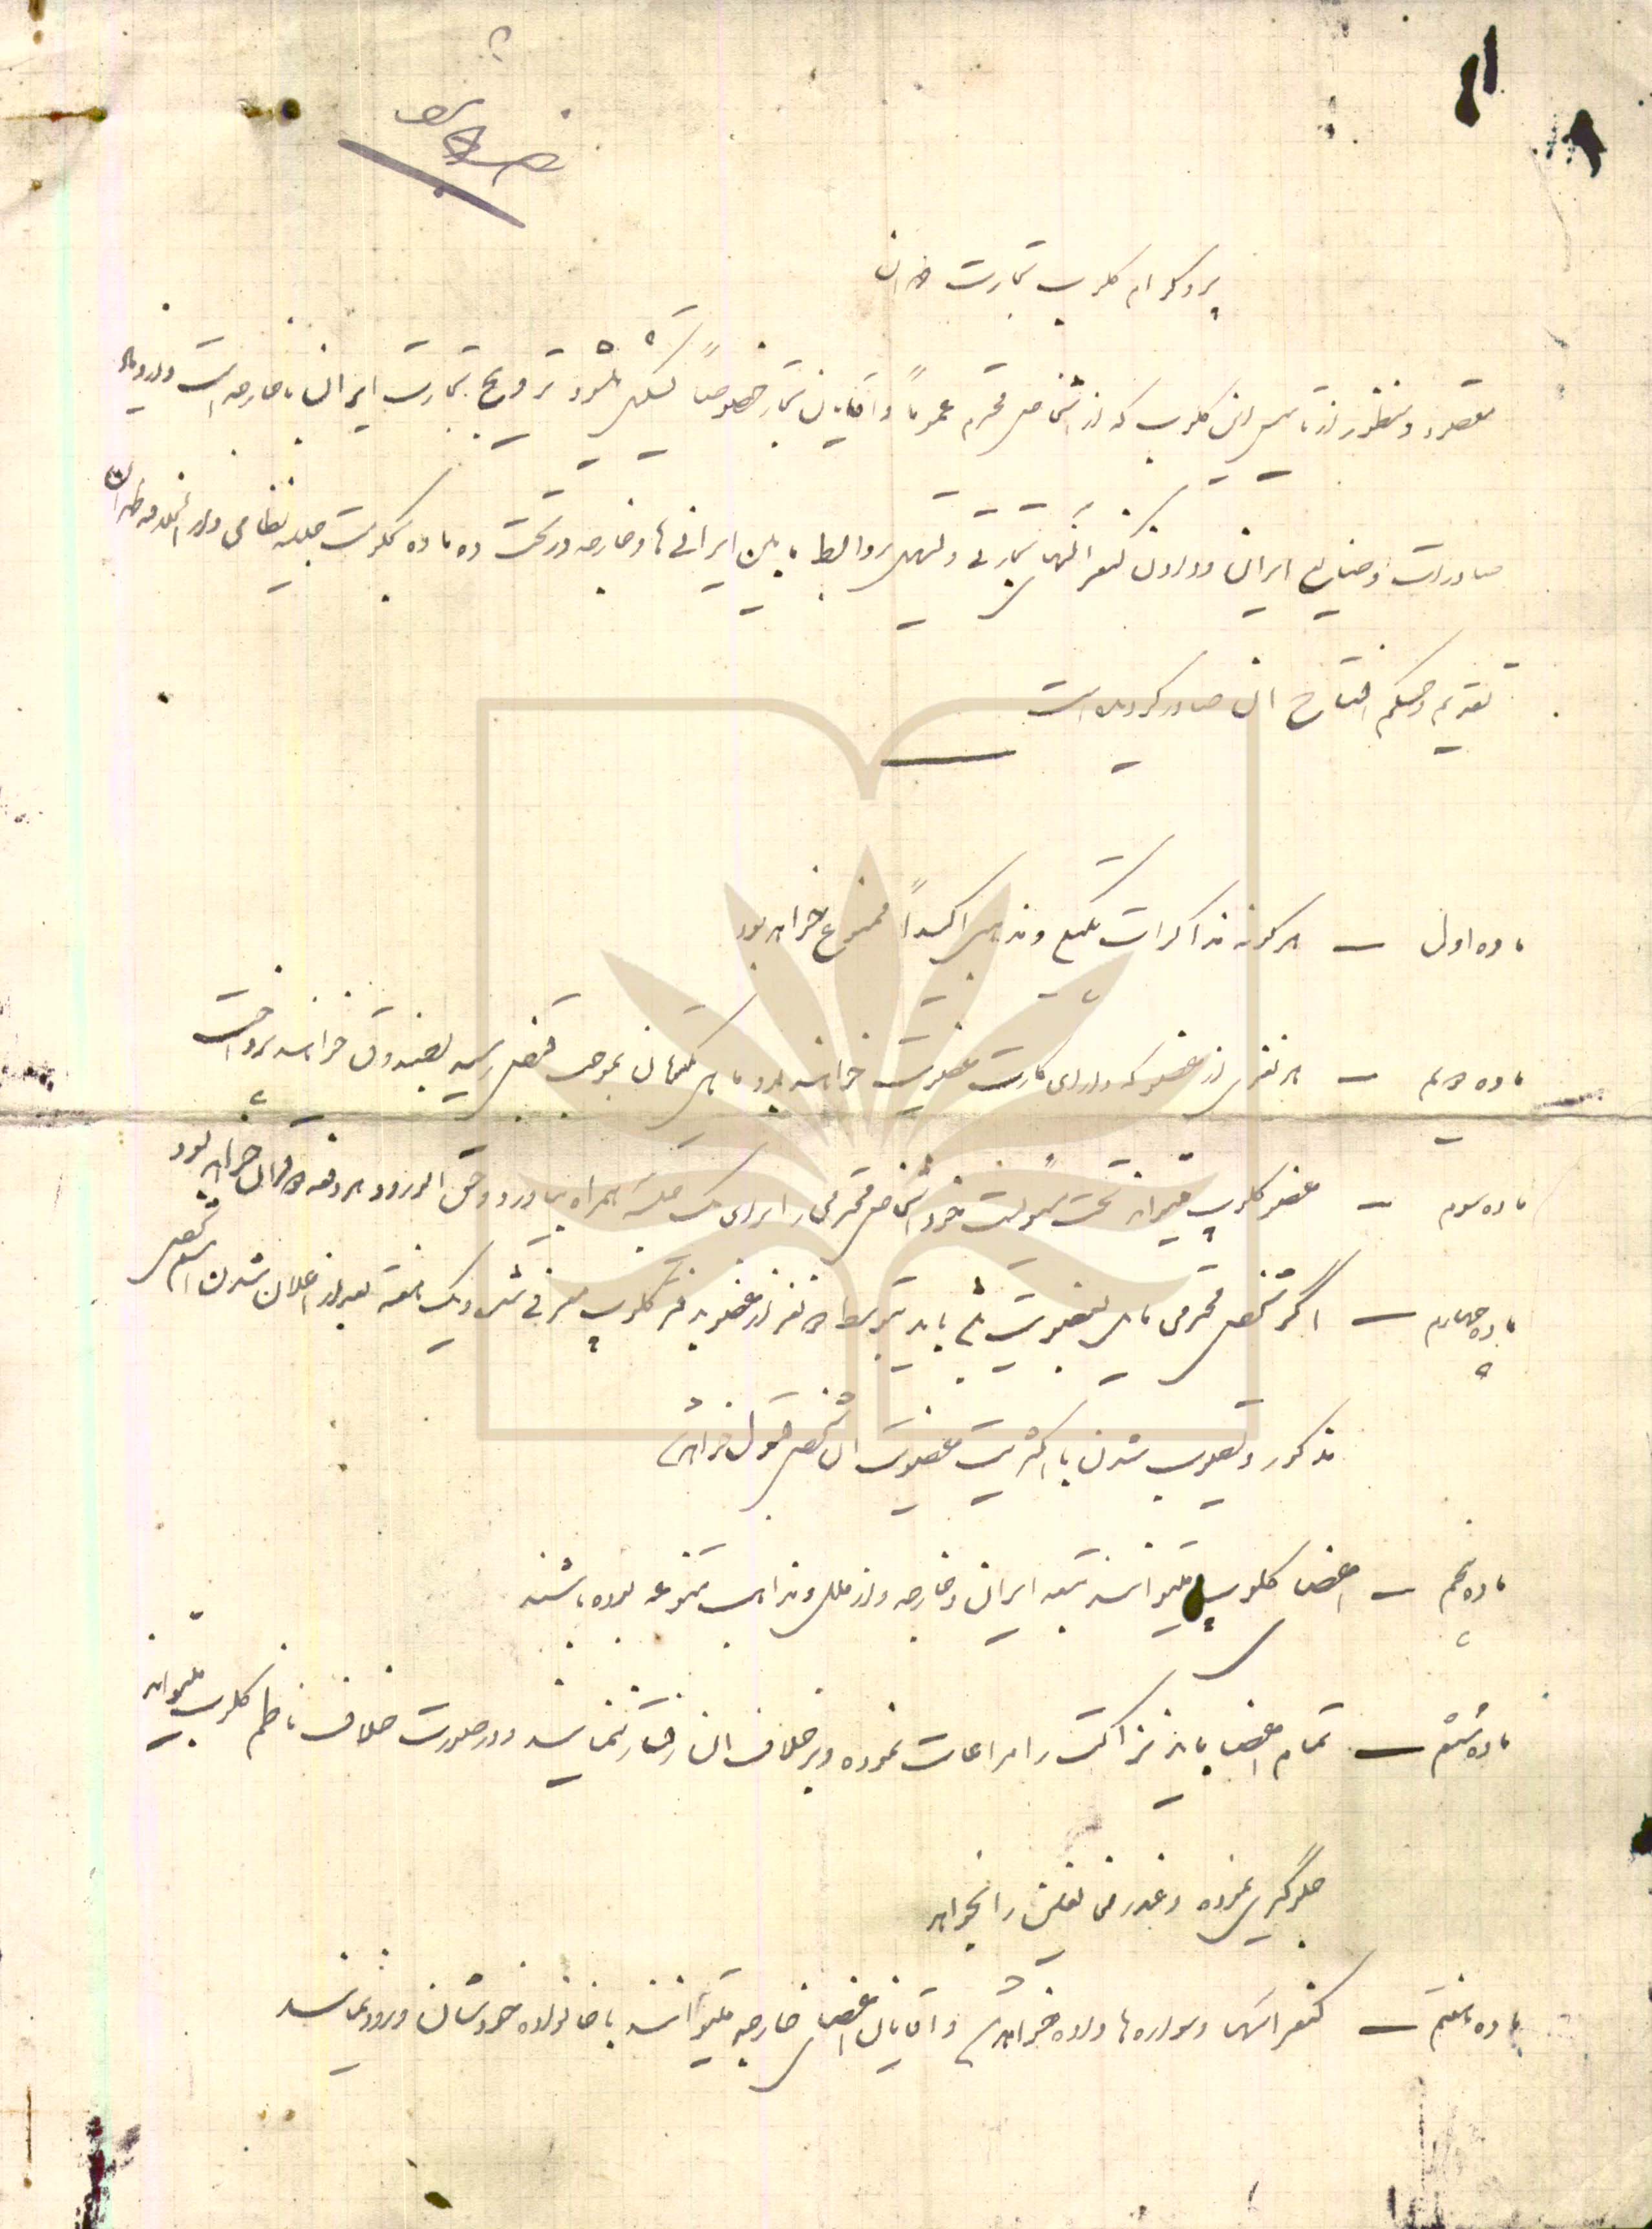 پروگرام کلوپ تجارت
مقصود و منظور از تاسیس این کلوپ که از اشخاص محترم عموماً و آقایان تجار خصوصاً تشکیل میشود ترویج تجارت ایران با خارجه است و ازدیاد
صادرات و صنایع ایران و دادن کنفرانسهای تجارتی و تسهیل روابط مابین ایرانی ها و خارجه در تحت ده ماده بحکومت جلیله نظامی دار الخلافه طهران
تقدیم و حکم افتتاح آن صادر گردیده است
ماده اول – هرگونه مذاکرات پلتیکی و مذهبی اکیداً ممنوع خواهد بود
ماده دوم – هر نفری از عضو که دارای کارت عضویت خواهند بود ماهی یکتومان بموجب قبض رسید بصندوق خواهند پرداخت
ماده سوم – عضو کلوپ میتواند تحت مسئولیت خود اشخاص محترمی را برای یک جلسه همراه بیاورد و حق الورود هر دفعه دو قران خواهد بود
ماده چهارم – اگر شخص محترمی مایل بعضویت باشد باید بتوسط دو نفر از عضو بدفتر کلوپ معرفی شود و یک هفته بعد از اعلان شدن اسم شخص
مذکور و تصویب شدن با اکثریت عضویت آن شخص قبول خواهد شد
ماده پنجم – اعضا کلوپ میتوانند تبعه ایران و خارجه و از ملل و مذاهب متنوعه بوده باشند
ماده ششم – تمام اعضا باید نزاکت را مراعات نموده و بر خلاف آن رفتار ننمایند و در صورت خلاف ناظم کلوپ میتواند
جلوگیری نموده و عذر منافقین را بخواهد
ماده هفتم – کنفرانسها و سواره ها داده خواهد شد و آقایان اعضای خارجه میتوانند با خانواده خودشان ورود نمایند